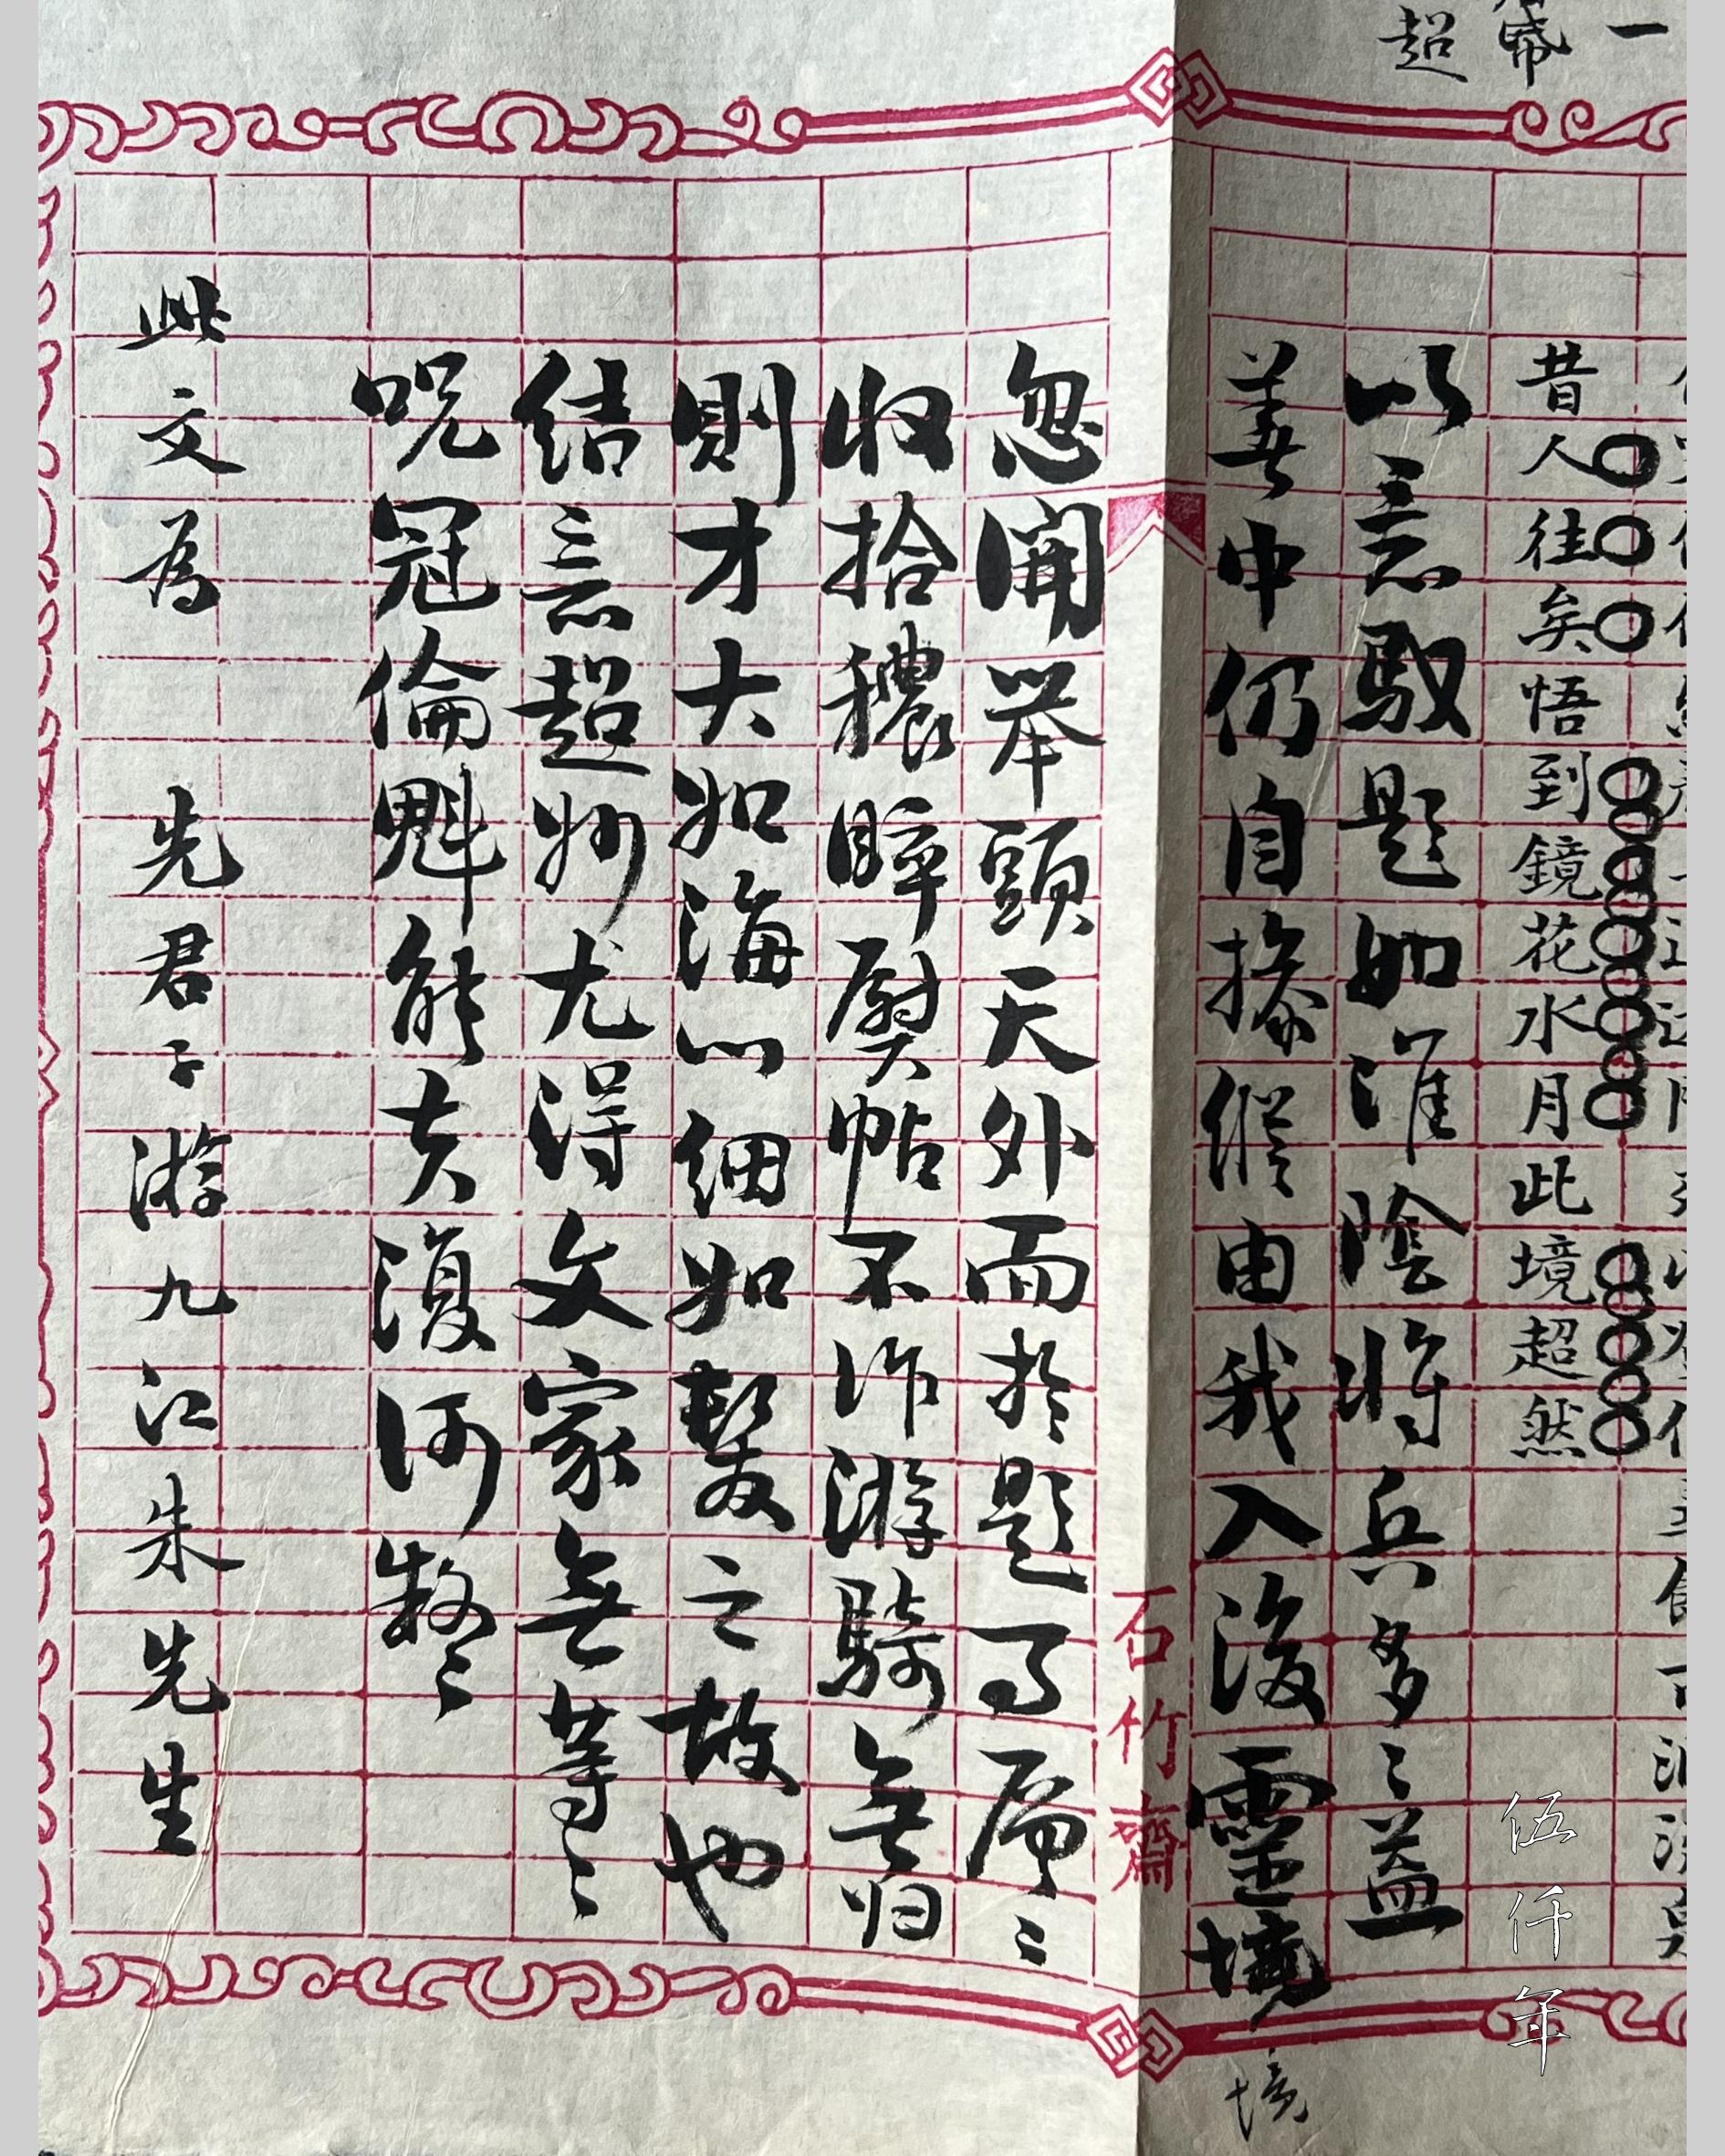 一
幕
超
昔人往矣悟到鏡花水月此境超然
以意馭題如淮陰將兵多〻益
善中仍自操縱由我入後靈境
境
忽開舉頭天外而於題之層〻
收拾穠睟熨帖不作游騎無归
則才大如海心細如髮之故也
結意超妙尤得文家無等〻
咒冠倫魁能夫復何慭〻
此文為 先君子游九江朱先生
石竹齋
伍仟年